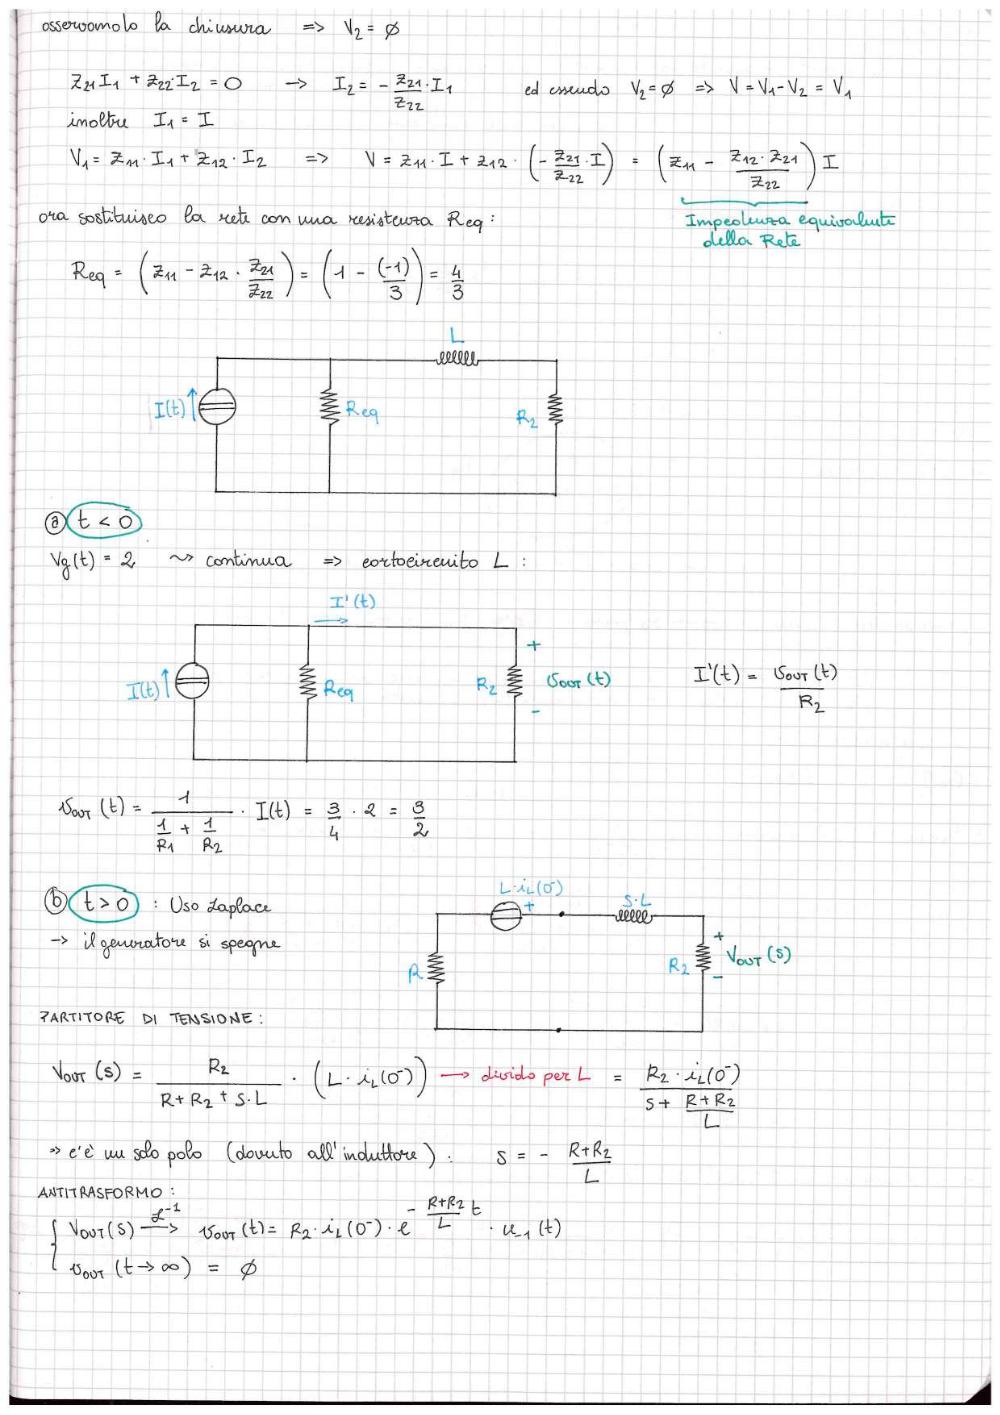 osserviamolo la chiusura => V₂ = ∅
Z₂₁I₁ + Z₂₂·I₂ = 0 → I₂ = - Z₂₁/Z₂₂ · I₁ ed essendo V₂ = ∅ => V = V₁ - V₂ = V₁
inoltre I₁ = I
V₁ = Z₁₁ · I₁ + Z₁₂ · I₂ => V = Z₁₁ · I + Z₁₂ · (- Z₂₁/Z₂₂ · I) = (Z₁₁ - Z₁₂ · Z₂₁/Z₂₂) I
Impedenza equivalente
della Rete
ora sostituisco la rete con una resistenza Req :
Req = (Z₁₁ - Z₁₂ · Z₂₁/Z₂₂) = (1 - (-1)/3) = 4/3
L
I(t) Req R₂
ⓐ t < 0
Vg(t) = 2 ⤳ continua => cortocircuito L :
I'(t)
I(t) Req R₂ + VOUT (t) -
I'(t) = VOUT (t)/R₂
VOUT (t) = 1/(1/R₁ + 1/R₂) · I(t) = 3/4 · 2 = 3/2
ⓑ t > 0 : Uso Laplace
-> il generatore si spegne
L·iL(0⁻) + S·L
R R₂ + VOUT (s) -
PARTITORE DI TENSIONE :
VOUT (s) = R₂/(R + R₂ + S·L) · (L · iL(0⁻)) → divido per L = R₂ · iL(0⁻)/(s + (R + R₂)/L)
=> c'è un solo polo (dovuto all'induttore) : s = - (R+R₂)/L
ANTITRASFORMO :
VOUT(S) ℒ⁻¹→ VOUT (t) = R₂ · iL(0⁻) · e^(-(R+R₂)/L t) · u₋₁ (t)
VOUT (t → ∞) = ∅